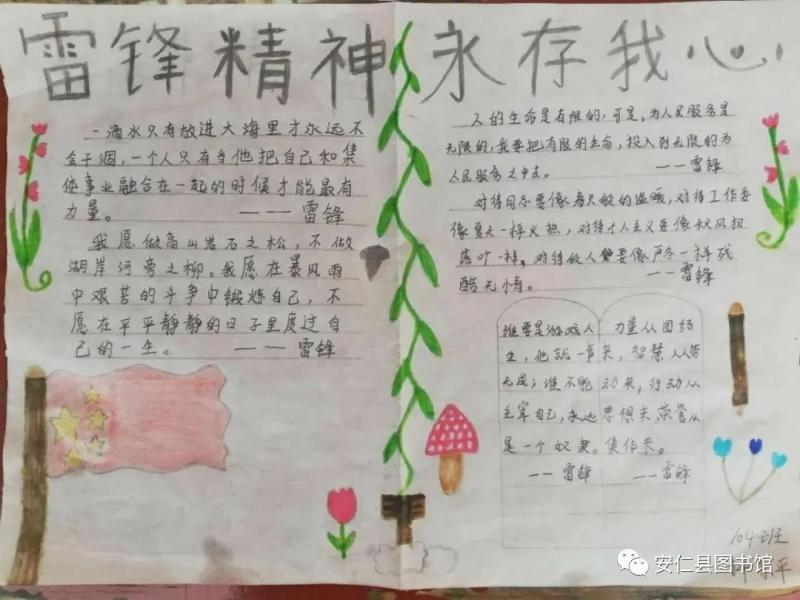 雷锋精神永存我心
一滴水只有放进大海里才永远不
会干涸，一个人只有当他把自己和集
体事业融合在一起的时候才能最有
力量。 ———雷锋
我愿做高山岩石之松，不做
湖岸河旁之柳。我愿在暴风雨
中艰苦的斗争中锻炼自己，不
愿在平平静静的日子里度过自
己的一生。 ———雷锋
人的生命是有限的，可是，为人民服务是
无限的，我要把有限的生命，投入到无限的为
人民服务之中去。 ——雷锋
对待同志要像春天般的温暖，对待工作要
像夏天一样火热，对待个人主义要像秋风扫
落叶一样，对待敌人要像严冬一样残
酷无情。 ——雷锋
谁要是游戏人
生，他就一事
无成；谁不能
主宰自己，永远
是一个奴隶。
——雷锋
力量从团结
来，智慧从劳
动来，行动从
思想来，荣誉从
集体来。
——雷锋
104班
平
安仁县图书馆